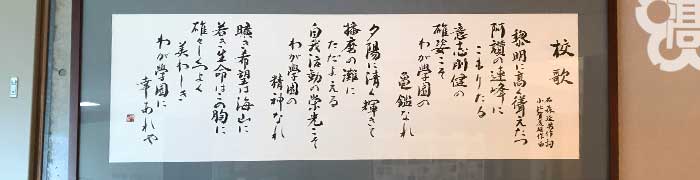 校歌
石森延男作詞
小松耕輔作曲
黎明に高く聳えたつ
阿讃の連峰に
こもりたる
意志剛健の
雄姿こそ
わが學園の
亀鑑なれ
夕陽に清く輝きて
播磨の灘に
ただよえる
自我活動の栄光こそ
わが學園の
精神なれ
曠き希望は海山に
若き生命はこの胸に
雄々しくよく
美わしき
わが學園に
幸あれや